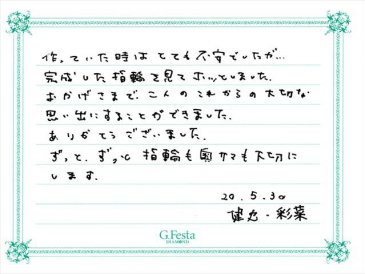 作っていた時はとても不安でしたが…
完成した指輪を見てホッとしました。
おかげさまで、二人のこれからの大切な
思い出にすることができました。
ありがとうございました。
ずっと、ずっと 指輪も奥サマも大切に
します。
20.5.30
健也・彩菜
G.Festa
DIAMOND